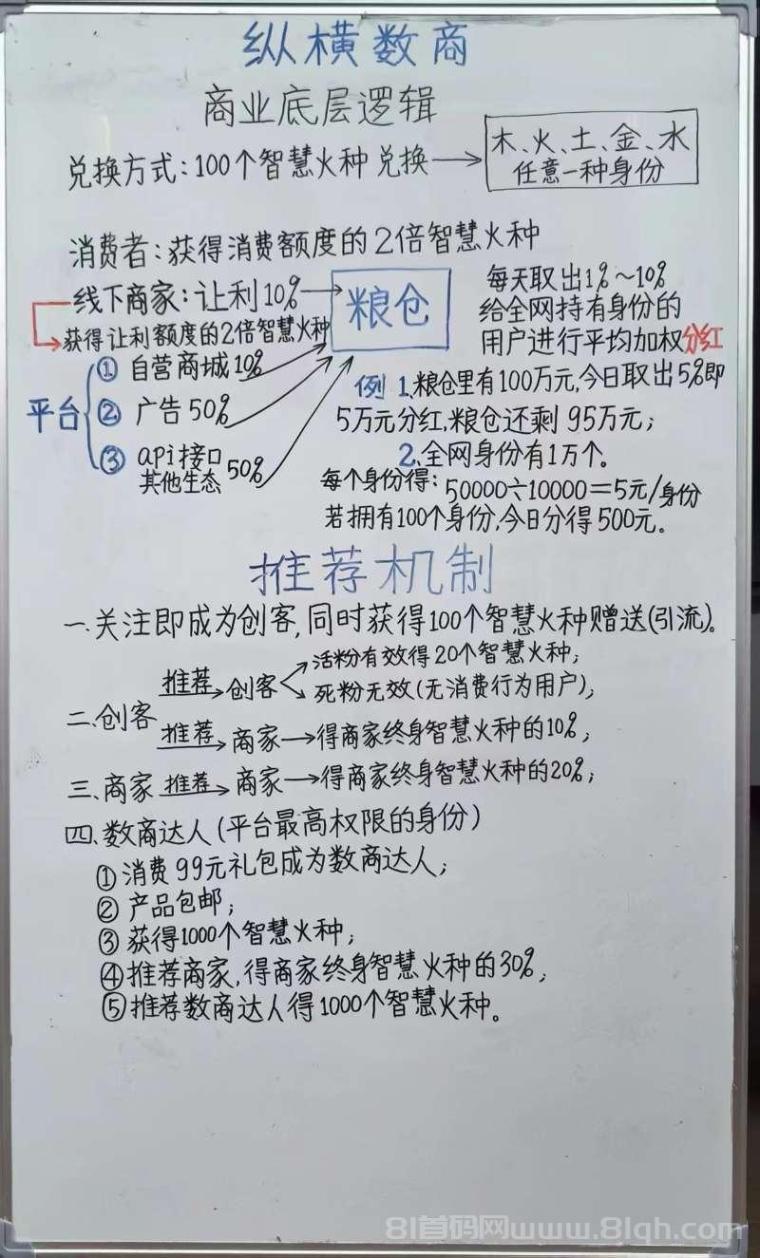 纵横数商
商业底层逻辑
兑换方式:100个智慧火种兑换→
木、火、土、金、水
任意一种身份
消费者:获得消费额度的2倍智慧火种
线下商家:让利10%→
获得让利额度的2倍智慧火种
粮仓
每天取出1%~10%
给全网持有身份的
用户进行平均加权分红
平台
① 自营商城10%
② 广告50%
③ api接口
其他生态 50%
例 1.粮仓里有100万元,今日取出5%即
5万元分红,粮仓还剩95万元;
2.全网身份有1万个。
每个身份得:50000÷10000=5元/身份
若拥有100个身份,今日分得500元。
推荐机制
一.关注即成为创客,同时获得100个智慧火种赠送(引流)。
二.创客
推荐→创客
活粉有效得20个智慧火种;
死粉无效(无消费行为用户);
推荐→商家→得商家终身智慧火种的10%;
三、商家 推荐→商家→得商家终身智慧火种的20%;
四、数商达人(平台最高权限的身份)
①消费99元礼包成为数商达人;
②产品包邮;
③获得1000个智慧火种;
④推荐商家,得商家终身智慧火种的30%;
⑤推荐数商达人得1000个智慧火种。
81首码网www.81qh.com